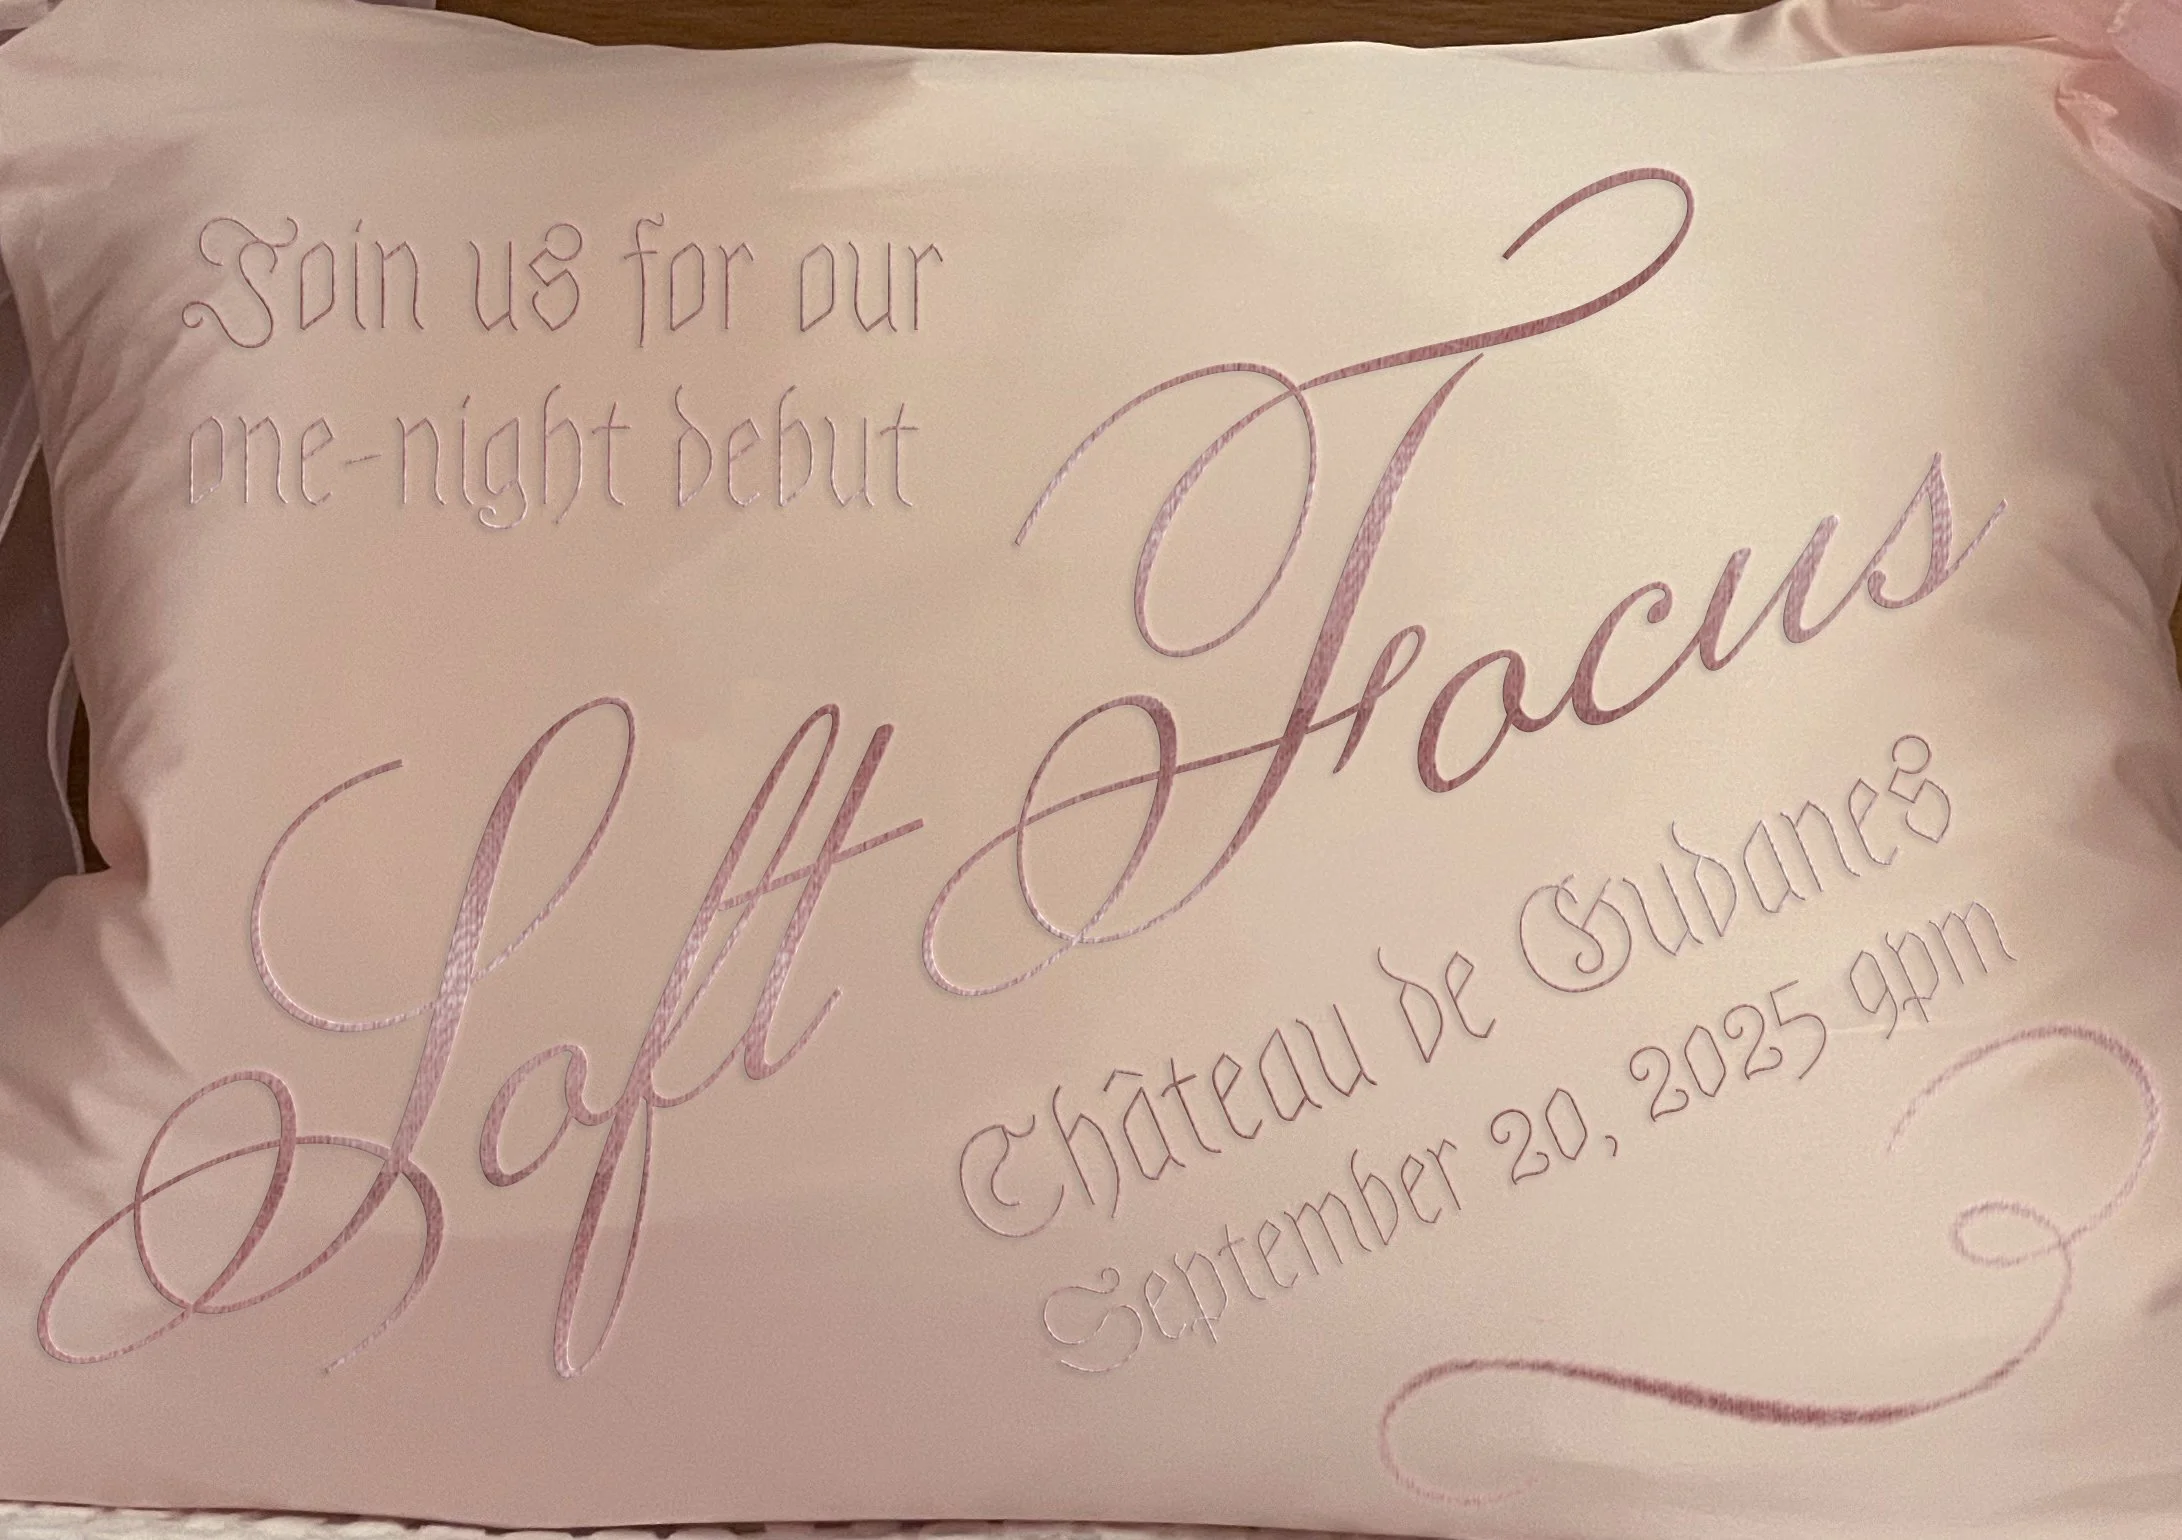 Join us for our
one-night debut
Soft Focus
Château de Gudanes
September 20, 2025 9pm